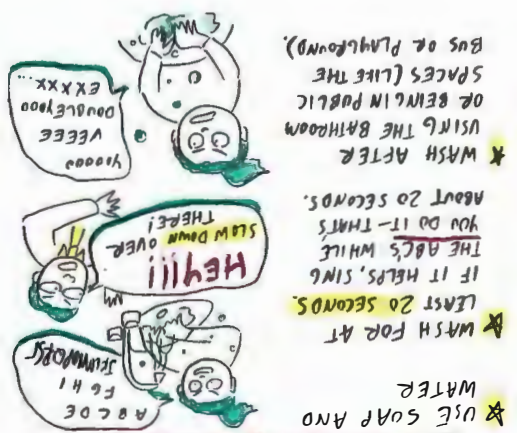 ☆ USE SOAP AND
WATER
☆ WASH FOR AT
LEAST 20 SECONDS.
IF IT HELPS, SING
THE ABC'S WHILE
YOU DO IT – THAT'S
ABOUT 20 SECONDS.
☆ WASH AFTER
USING THE BATHROOM
OR BEING IN PUBLIC
SPACES (LIKE THE
BUS OR PLAYGROUND).
A B C D E
F G H I
HEY!!!
SLOW DOWN OVER
THERE!
VEEEE
DOUBLEYOOO
EXXXX...